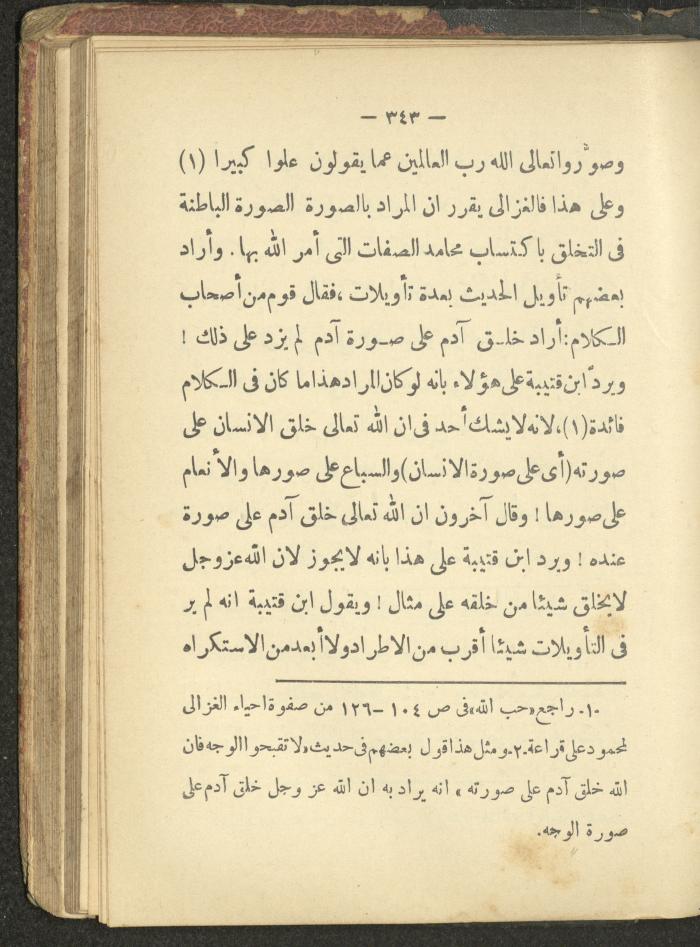 — ٣٤٣ —
وصوَّروا تعالى الله رب العالمين عما يقولون علوا كبيرا (١)
وعلى هذا فالغزالى يقرر ان المراد بالصورة الصورة الباطنة
فى التخلق باكتساب محامد الصفات التى أمر الله بها. وأراد
بعضهم تأويل الحديث بعدة تأويلات، فقال قوم من أصحاب
الكلام: أراد خلق آدم على صورة آدم لم يزد على ذلك !
ويردّ ابن قتيبة على هؤلاء بانه لو كان المراد هذا ما كان فى الكلام
فائدة (١)، لانه لا يشك أحد فى ان الله تعالى خلق الانسان على
صورته (أى على صورة الانسان) والسباع على صورها والأنعام
على صورها ! وقال آخرون ان الله تعالى خلق آدم على صورة
عنده ! ويرد ابن قتيبة على هذا بانه لا يجوز لان الله عز وجل
لا يخلق شيئا من خلقه على مثال ! ويقول ابن قتيبة انه لم ير
فى التأويلات شيئا أقرب من الاطراد ولا أبعد من الاستكراه
-١- راجع «حب الله» فى ص ١٠٤ – ١٢٦ من صفوة احياء الغزالى
لمحمود على قراعة.-٢- ومثل هذا قول بعضهم فى حديث «لا تقبحوا الوجه فان
الله خلق آدم على صورته » انه يراد به ان الله عز وجل خلق آدم على
صورة الوجه.